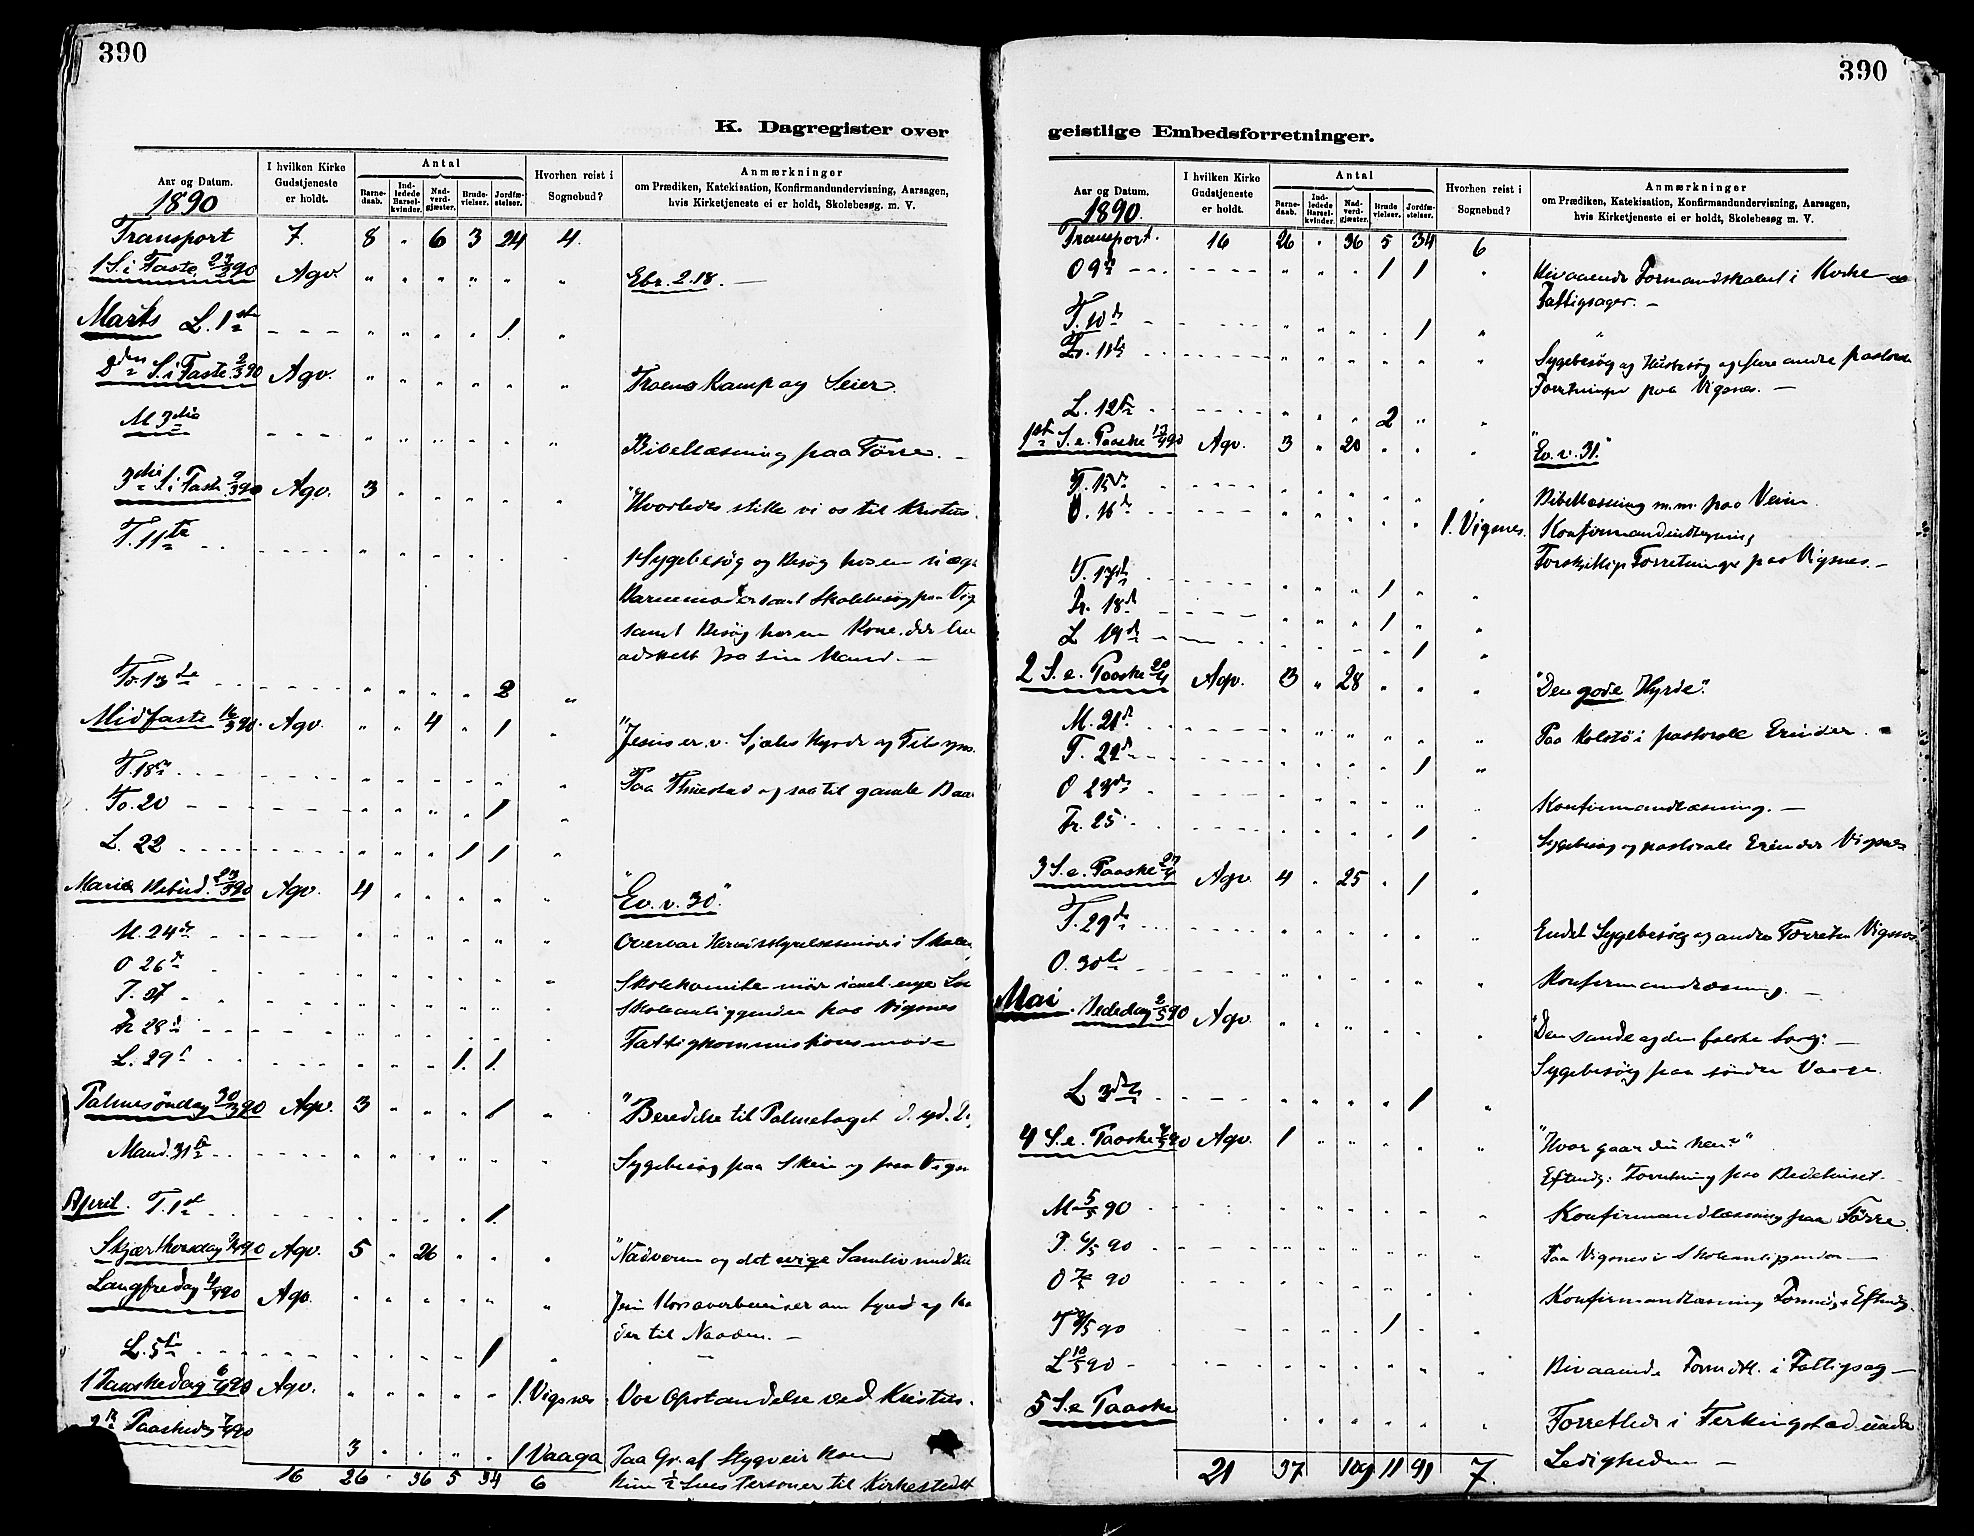 390
K. Dagregister over
Aar og Datum.
I hvilken Kirke Gudstjeneste er holdt.
Antal
Barne-daab.
Ind-ledede Barsel-kvinder.
Nad-verd-gjæster.
Brude-vielser.
Jordfæ-stelser.
Hvorhen reist i Sognebud?
Anmærkninger
om Prædiken, Katekisation, Konfirmandundervisning, Aarsagen,
hvis Kirketjeneste ei er holdt, Skolebesøg. m. V.
1890
Transport 7. 8 " 6 3 24 4.
1 S. i Faste 23/2 90 Agv. " " " " " " Ebr. 2.18. —
Marts L. 1ste - - - " " " " 1. "
2den S. i Faste 2/3 90 Agv. " " " " " " Troens Kamp og Seier.
M 3die - - - " " " " " " Bibellæsning paa Førre. —
3die S. i Faste 9/3 90 Agv. 3 " " " " " "Hvorledes stille vi os til Kristus.
T. 11te " " " " " " 1 Sygebesøg og Besøg hos en
Barnemoder samt Skolebesøg paa Vig
samt Besøg hos en Kone, der
adskilt fra sin Mand. —
To. 13de " " " " 2 "
Midfaste 16/3 90. Agv. " " 4 " 1 " "Jesus er v. Sjæles Hyrde og Tilsyns
T. 18de " " " " " " Paa og saa til gamle
To. 20 " " " " 1 "
L. 22 " " " 1 1 "
Mariæ Bebud. 23/3 90 Agv. 4 " " " " " "Ev. v. 30."
M. 24de " " " " " " Overvar i Skolen
O 26de " " " " " " Skolekomite møde samt
T. 27 " " " " " " Skoleanliggender paa Vigsnes
Fr 28de " " " " " " Fattigkommissionsmøde
L. 29de " " " 1. 1.
Palmesøndag 30/3 90 Agv. 3 " " " 1 " "Beredelse til Palmetoget
Mand. 31te " " " " " " Sygebesøg paa Skeie og paa Vigsn
April. T. 1ste " " " " 1.
Skjærthorsdag 3/4 90 Agv. 5 " 26 " " " "Nadveren og det evige Samliv med
Langfredag 4/4 90 Agv. " " " " " " Jesu Kors overbeviser om Synd og
der til Naaden. —
L. 5te " " " " 1 "
1 Paaskedag 6/4 90 Agv. " " " " " 1. Vigsnes Vor Opstandelse ved Kristus.
2den Paaskedag 7/4 90 3 " " " " 1 Vaaga Paa Gr. af Stygveir kom
kun Personer til Kirkestedet
16 26 " 36 5 34 6
390
geistlige Embedsforretninger.
Aar og Datum.
I hvilken Kirke Gudstjeneste er holdt.
Antal
Barne-daab.
Ind-ledede Barsel-kvinder.
Nad-verd-gjæster.
Brude-vielser.
Jordfæ-stelser.
Hvorhen reist i Sognebud?
Anmærkninger
om Prædiken, Katekisation, Konfirmandundervisning, Aarsagen,
hvis Kirketjeneste ei er holdt, Skolebesøg m. V.
1890.
Transport. 16 26 " 36 5 34 6
O 9de " " " 1 1 " Bivaaende Formandskabet i Kirke og
Fattigsager. —
T. 10de " " " " 1 " "
Fr. 11te " " " " " " Sygebesøg og Husbesøg og flere andre pastorale
Forretninger paa Vigsnes. —
L. 12te " " " 2 " "
1ste S. e. Paaske 13/4 90 Agv. 3 " 20 " " " "Ev. v. 31."
T. 15de " " " " " " Bibellæsning m.m. paa
O. 16de " " " " " 1. Vigsnes. Konfirmandindtegning
Forskjellige Forretninger paa Vigsnes. —
T. 17de " " " 1 " "
Fr. 18de " " " 1 " "
L 19de " " " " 1 "
2 S. e. Paaske 20/4 Agv. 3 " 28 " " " "Den gode Hyrde".
M. 21de " " " " " " Paa Kolstø i pastorale Erinder.
T. 22de " " " " 1 "
O 23de " " " " " " Konfirmandlæsning. —
Fr. 25 " " " " 1 " Sygebesøg og pastorale Erinder Vigsnes
3 S. e. Paaske 27/4 Agv. 4 " 25 " 1 "
T. 29de " " " " " " Endel Sygebesøg og andre Forretn Vigsnes
O. 30te " " " " " " Konfirmandlæsning. —
Mai. Bededag 2/5 90 Agv. " " " " " " "Den sande og den falske Sorg". —
Sygebesøg paa søndre Vaage.
L. 3die " " " " 1 "
4 S. e. Paaske 4/5 90 Agv. 1 " " " " " "Hvor gaar du hen?"
Eftmdg. Forretning paa Bedehuset.
M 5/5 90 " " " " " " Konfirmandlæsning paa Førre
T. 6/5 90 " " " " " " Paa Vigsnes i Skoleanliggender —
O 7/5 90 " " " " " " Konfirmandlæsning Formdg. & Eftmdg.
T 8/5 90 " " " 1 " "
L 10/5 90 " " " " " " Bivaaende Formdsk. i Fattigsag —
5 S. e Paaske " " " " " " Forrettede i Ferkingstad under
Ledigheden —
21 37 109 11 41 7.